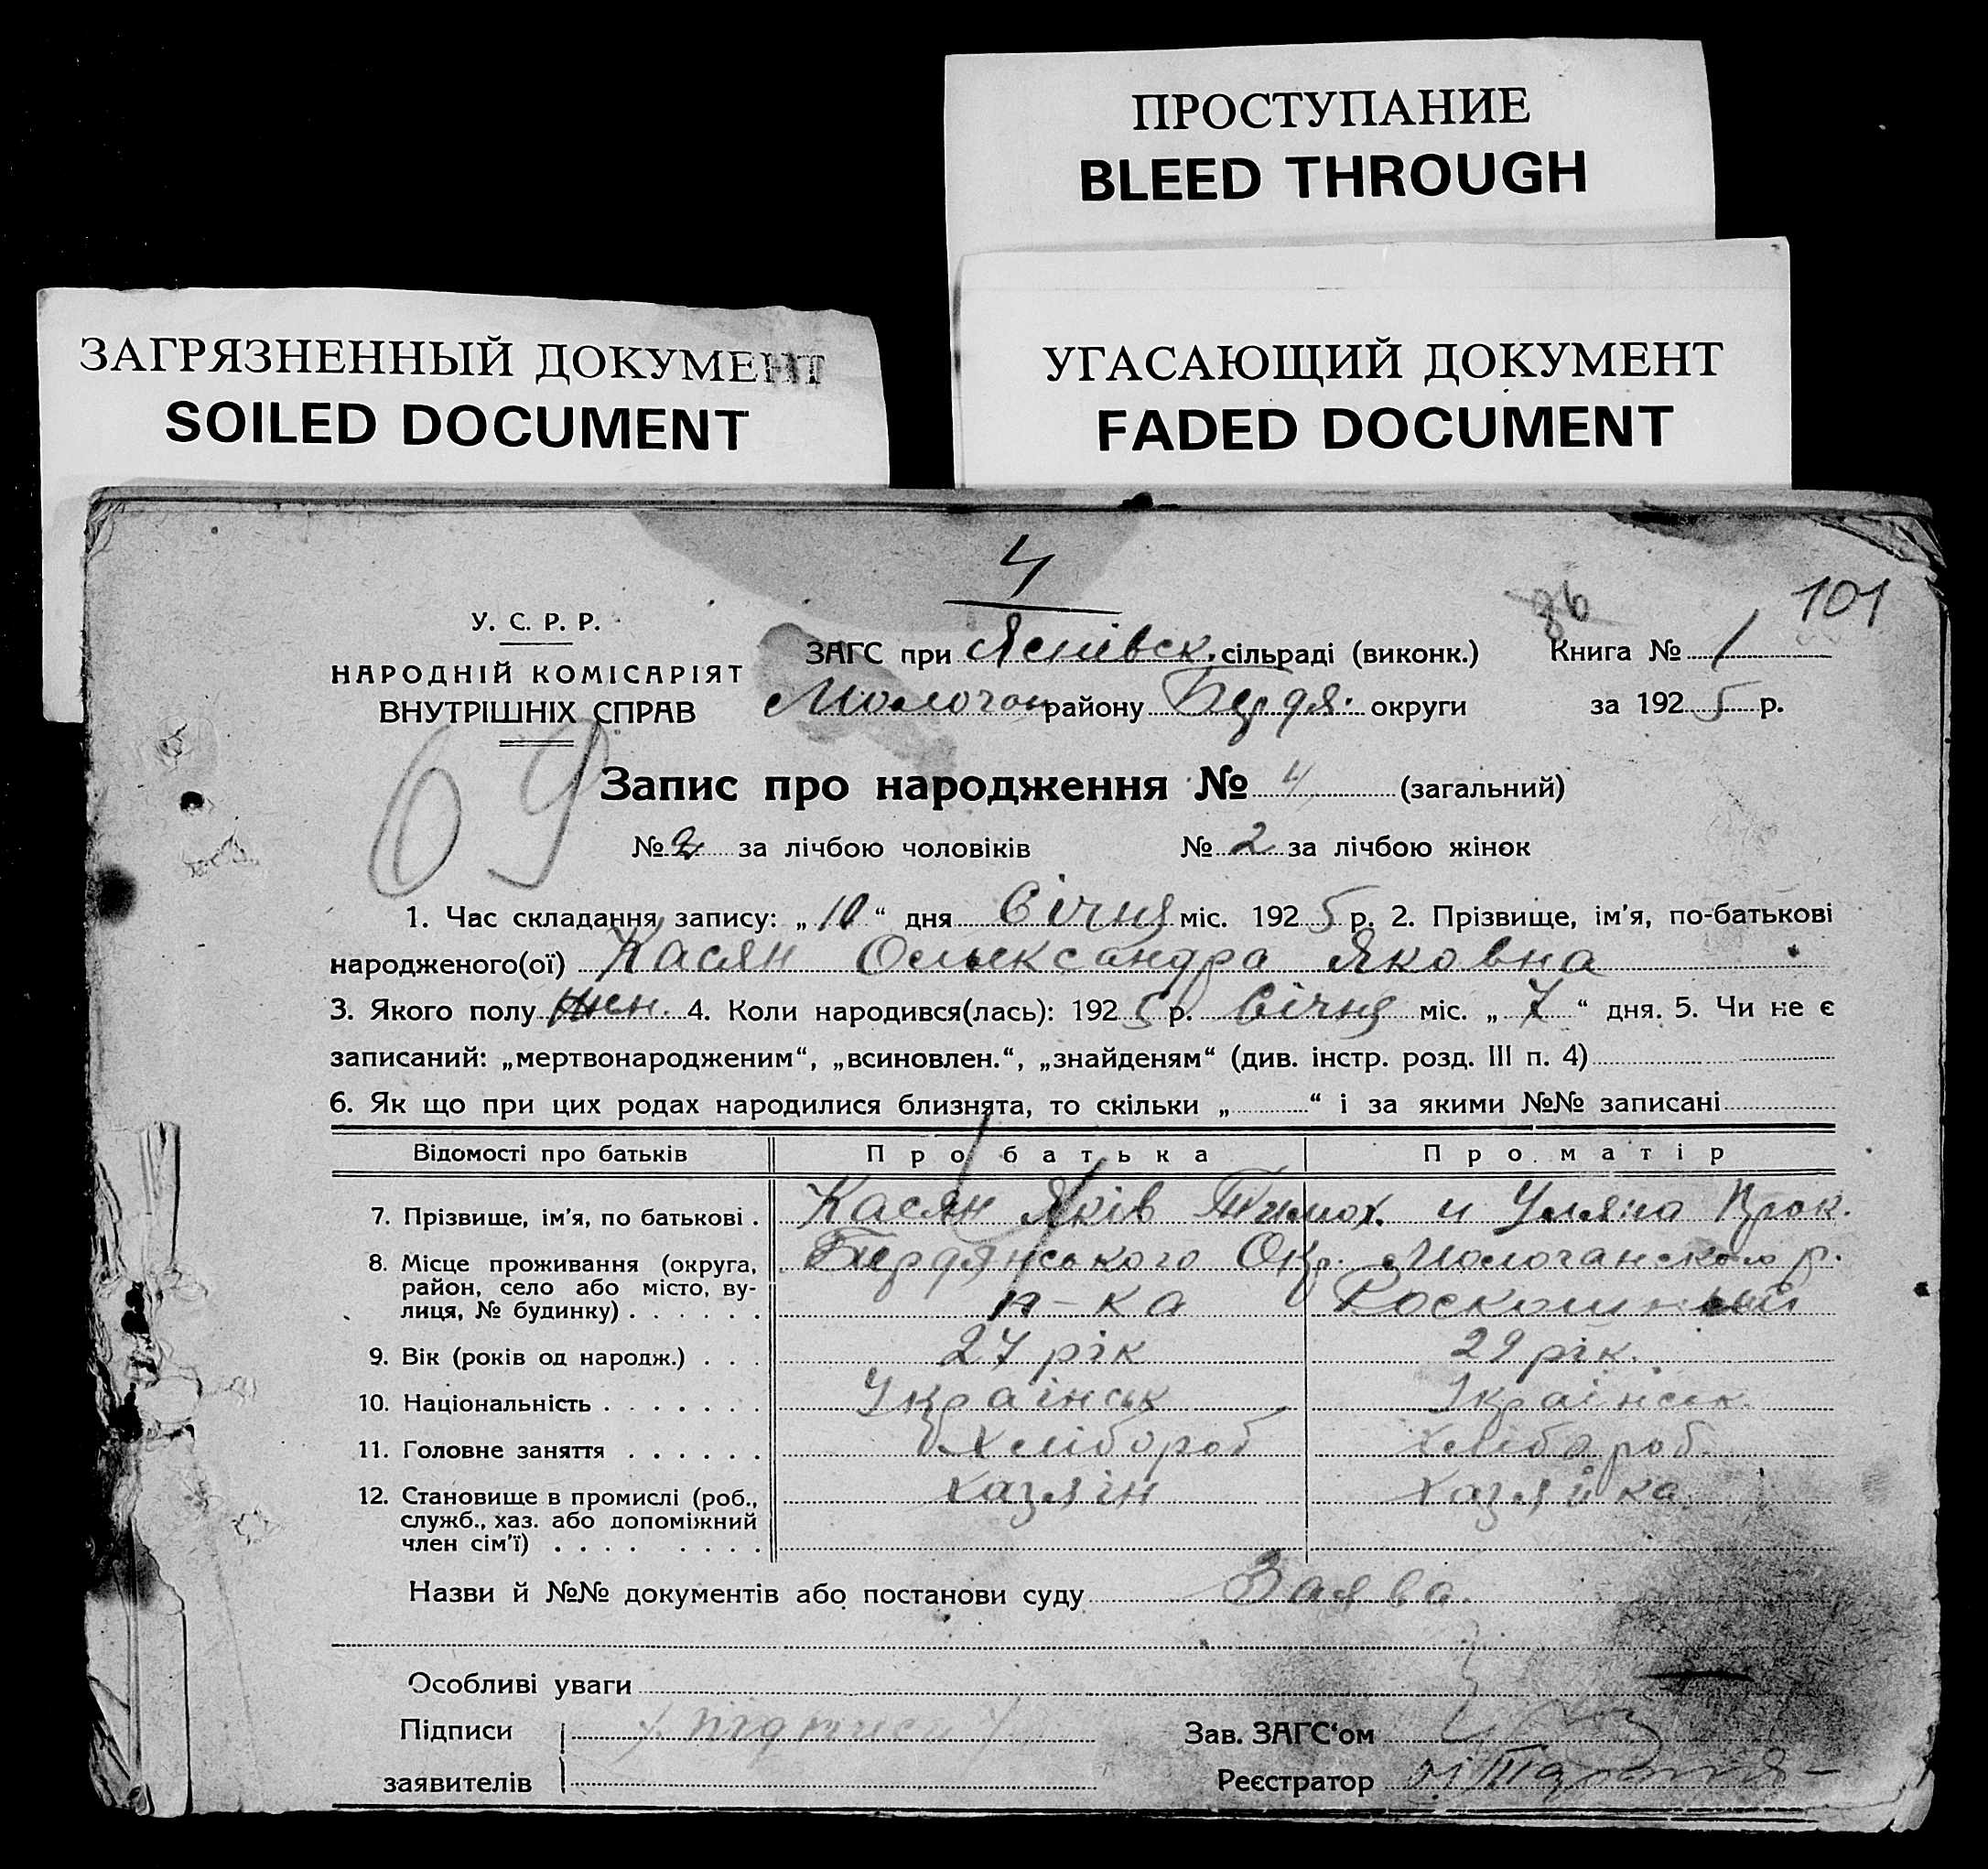 ПРОСТУПАНИЕ
BLEED THROUGH
ЗАГРЯЗНЕННЫЙ ДОКУМЕНТ
SOILED DOCUMENT
УГАСАЮЩИЙ ДОКУМЕНТ
FADED DOCUMENT
4
86
101
У. С. Р. Р.
НАРОДНІЙ КОМІСАРІЯТ
ВНУТРІШНІХ СПРАВ
69
ЗАГС при сільраді (виконк.) Книга № 1
Молочан району Бердя. округи за 1925 р.
Запис про народження № 4 (загальний)
№ за лічбою чоловіків № 2 за лічбою жінок
1. Час складання запису: „10“ дня Січня міс. 1925 р. 2. Прізвище, ім'я, по-батькові
народженого(ої) Касян Олександра Яковна
3. Якого полу жен. 4. Коли народився(лась): 1925 р. Січня міс. „7“ дня. 5. Чи не є
записаний: „мертвонародженим“, „всиновлен.“, „знайденям“ (див. інстр. розд. III п. 4)
6. Як що при цих родах народилися близнята, то скільки „ “ і за якими №№ записані
Відомості про батьків Про батька Про матір
7. Прізвище, ім'я, по батькові . Касян Яків Тимох. и Уляна Прок.
8. Місце проживання (округа, Бердянського Окр. Молочанского р.
район, село або місто, ву-
лиця, № будинку) . . . . . . н-ка
9. Вік (років од народж.) . . . 27 рік 29 рік.
10. Національність . . . . . . . Українськ Українськ.
11. Головне заняття . . . . . . Хлібороб Хлібороб.
12. Становище в промислі (роб., Хазяін Хазяйка.
служб., хаз. або допоміжний
член сім'ї) . . . . . . . .
Назви й №№ документів або постанови суду Заява.
Особливі уваги
Підписи / підписи / Зав. ЗАГС‘ом
заявителів Реєстратор